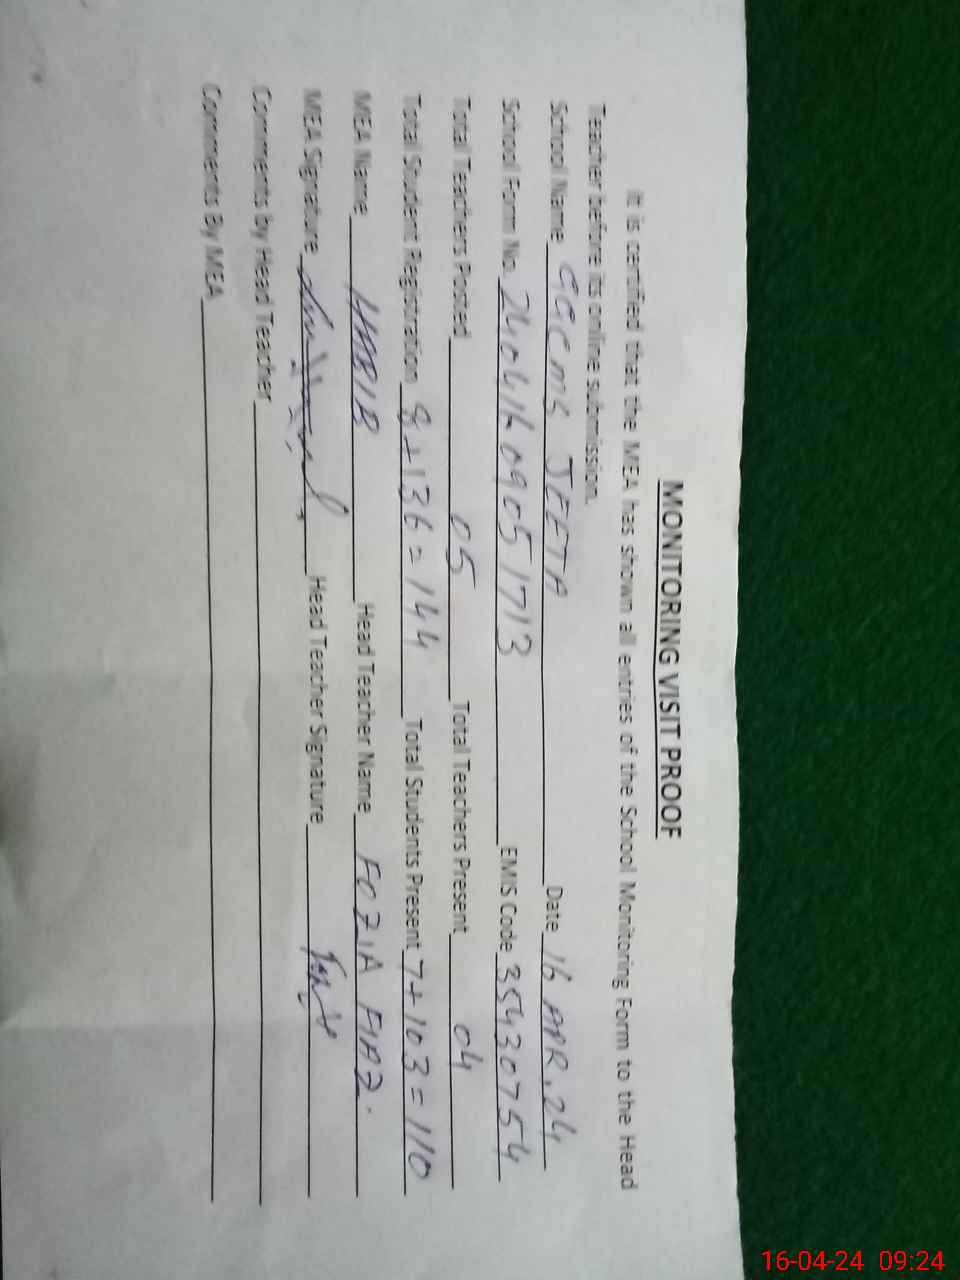 MONITORING VISIT PROOF
It is certified that the MEA has shown all entries of the School Monitoring Form to the Head
Teacher before its online submission.
School Name GGCMS JEETA Date 16 APR. 24
School Form No. 24041609051713 EMIS Code 35430754
Total Teachers Posted 05 Total Teachers Present 04
Total Student Registration 8+136=144 Total Students Present 7+103=110
MEA Name HABIB Head Teacher Name FOZIA FIAZ.
MEA Signature Head Teacher Signature
Comments by Head Teacher
Comments By MEA
16-04-24 09:24